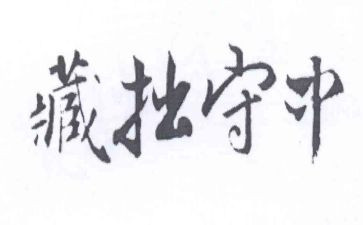 藏拙守中